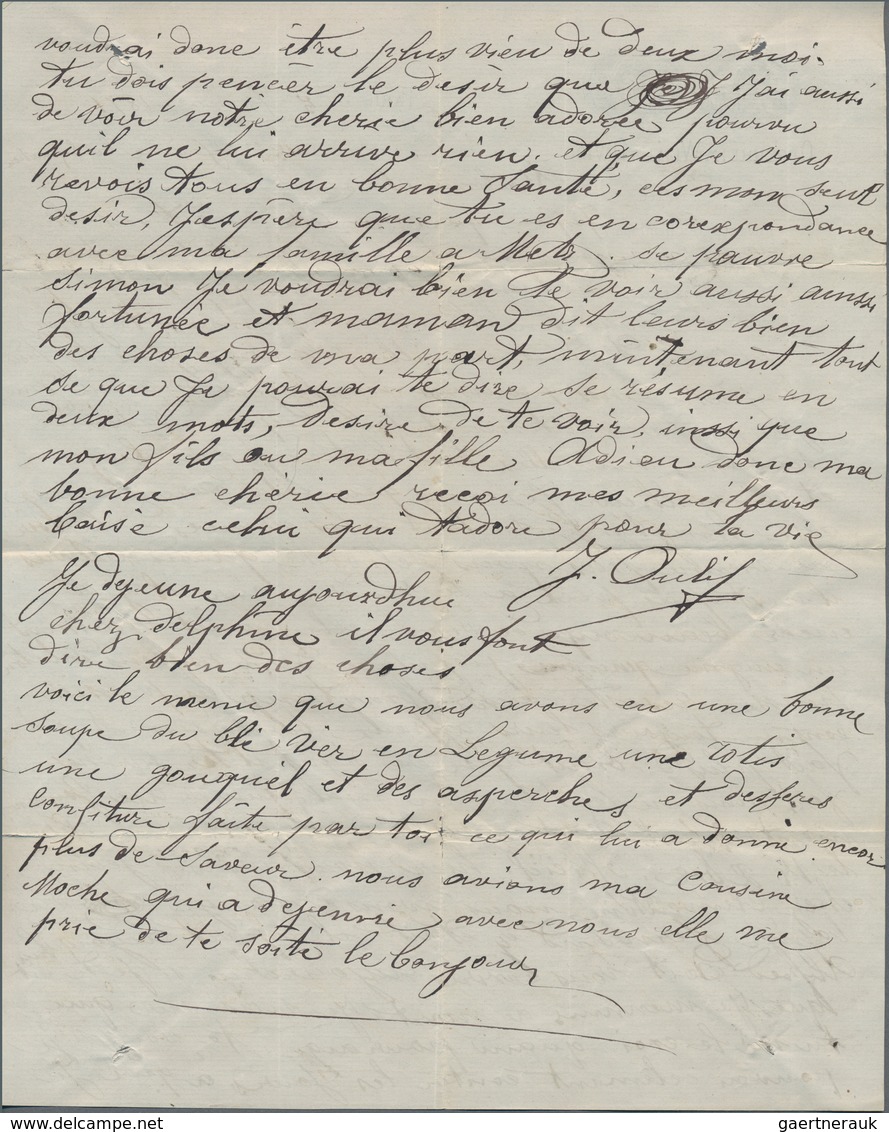 voudrai donc être plus vieu de deux moi.
tu dois pencér le desir que J J'ai aussi
de voir notre cherie bien adorée pourvu
quil ne lui arrive rien. et que Je vous
revois tous en bonne Santé, ces mon seul
desir, Jespère que tu es en corexpondance
avec ma famille a Metz. se pauvre
Simon Je voudrai bien le voir aussi ainssi
fortunée et maman dit leurs bien
des choses de ma part, mintenant tout
se que Je pourai te dire se résume en
deux mots, desire de te voir. inssi que
mon fils ou ma fille Adieu donc ma
bonne chérie reçoi mes meilleurs
baisé celui qui t'adore pour la vie
J. Oulif
Je dejeune aujourdhue
chez delphine il vous font
dire bien des choses
voici le menu que nous avons eu une bonne
soupe du blé Ver en Legume une rotis
une gouguel et des asperches et desseres
confiture faite par toi ce qui lui a donné encor
plus de Saveur. nous avions ma Cousine
Moche qui a dejeunée avec nous elle me
prie de te soité le bonjour
gaertnerauk